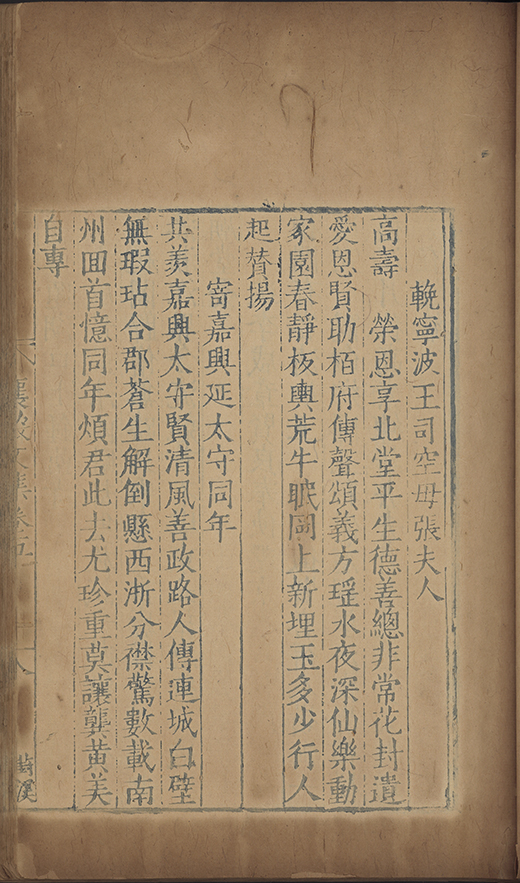 輓寧波王司空母張夫人
高壽 榮恩享北堂平生德善總非常花封遺
愛恩賢助栢府傳聲頌義方瑶水夜深仙樂動
家園春靜板輿荒牛眠岡上新埋玉多少行人
起賛揚
寄嘉興延太守同年
共羨嘉興太守賢清風善政路人傳連城白壁
無瑕玷合郡蒼生解倒懸西浙分襟驚數載南
州回首憶同年煩君此去尤珍重莫讓龔黃美
自專
襄毅文集卷五
八